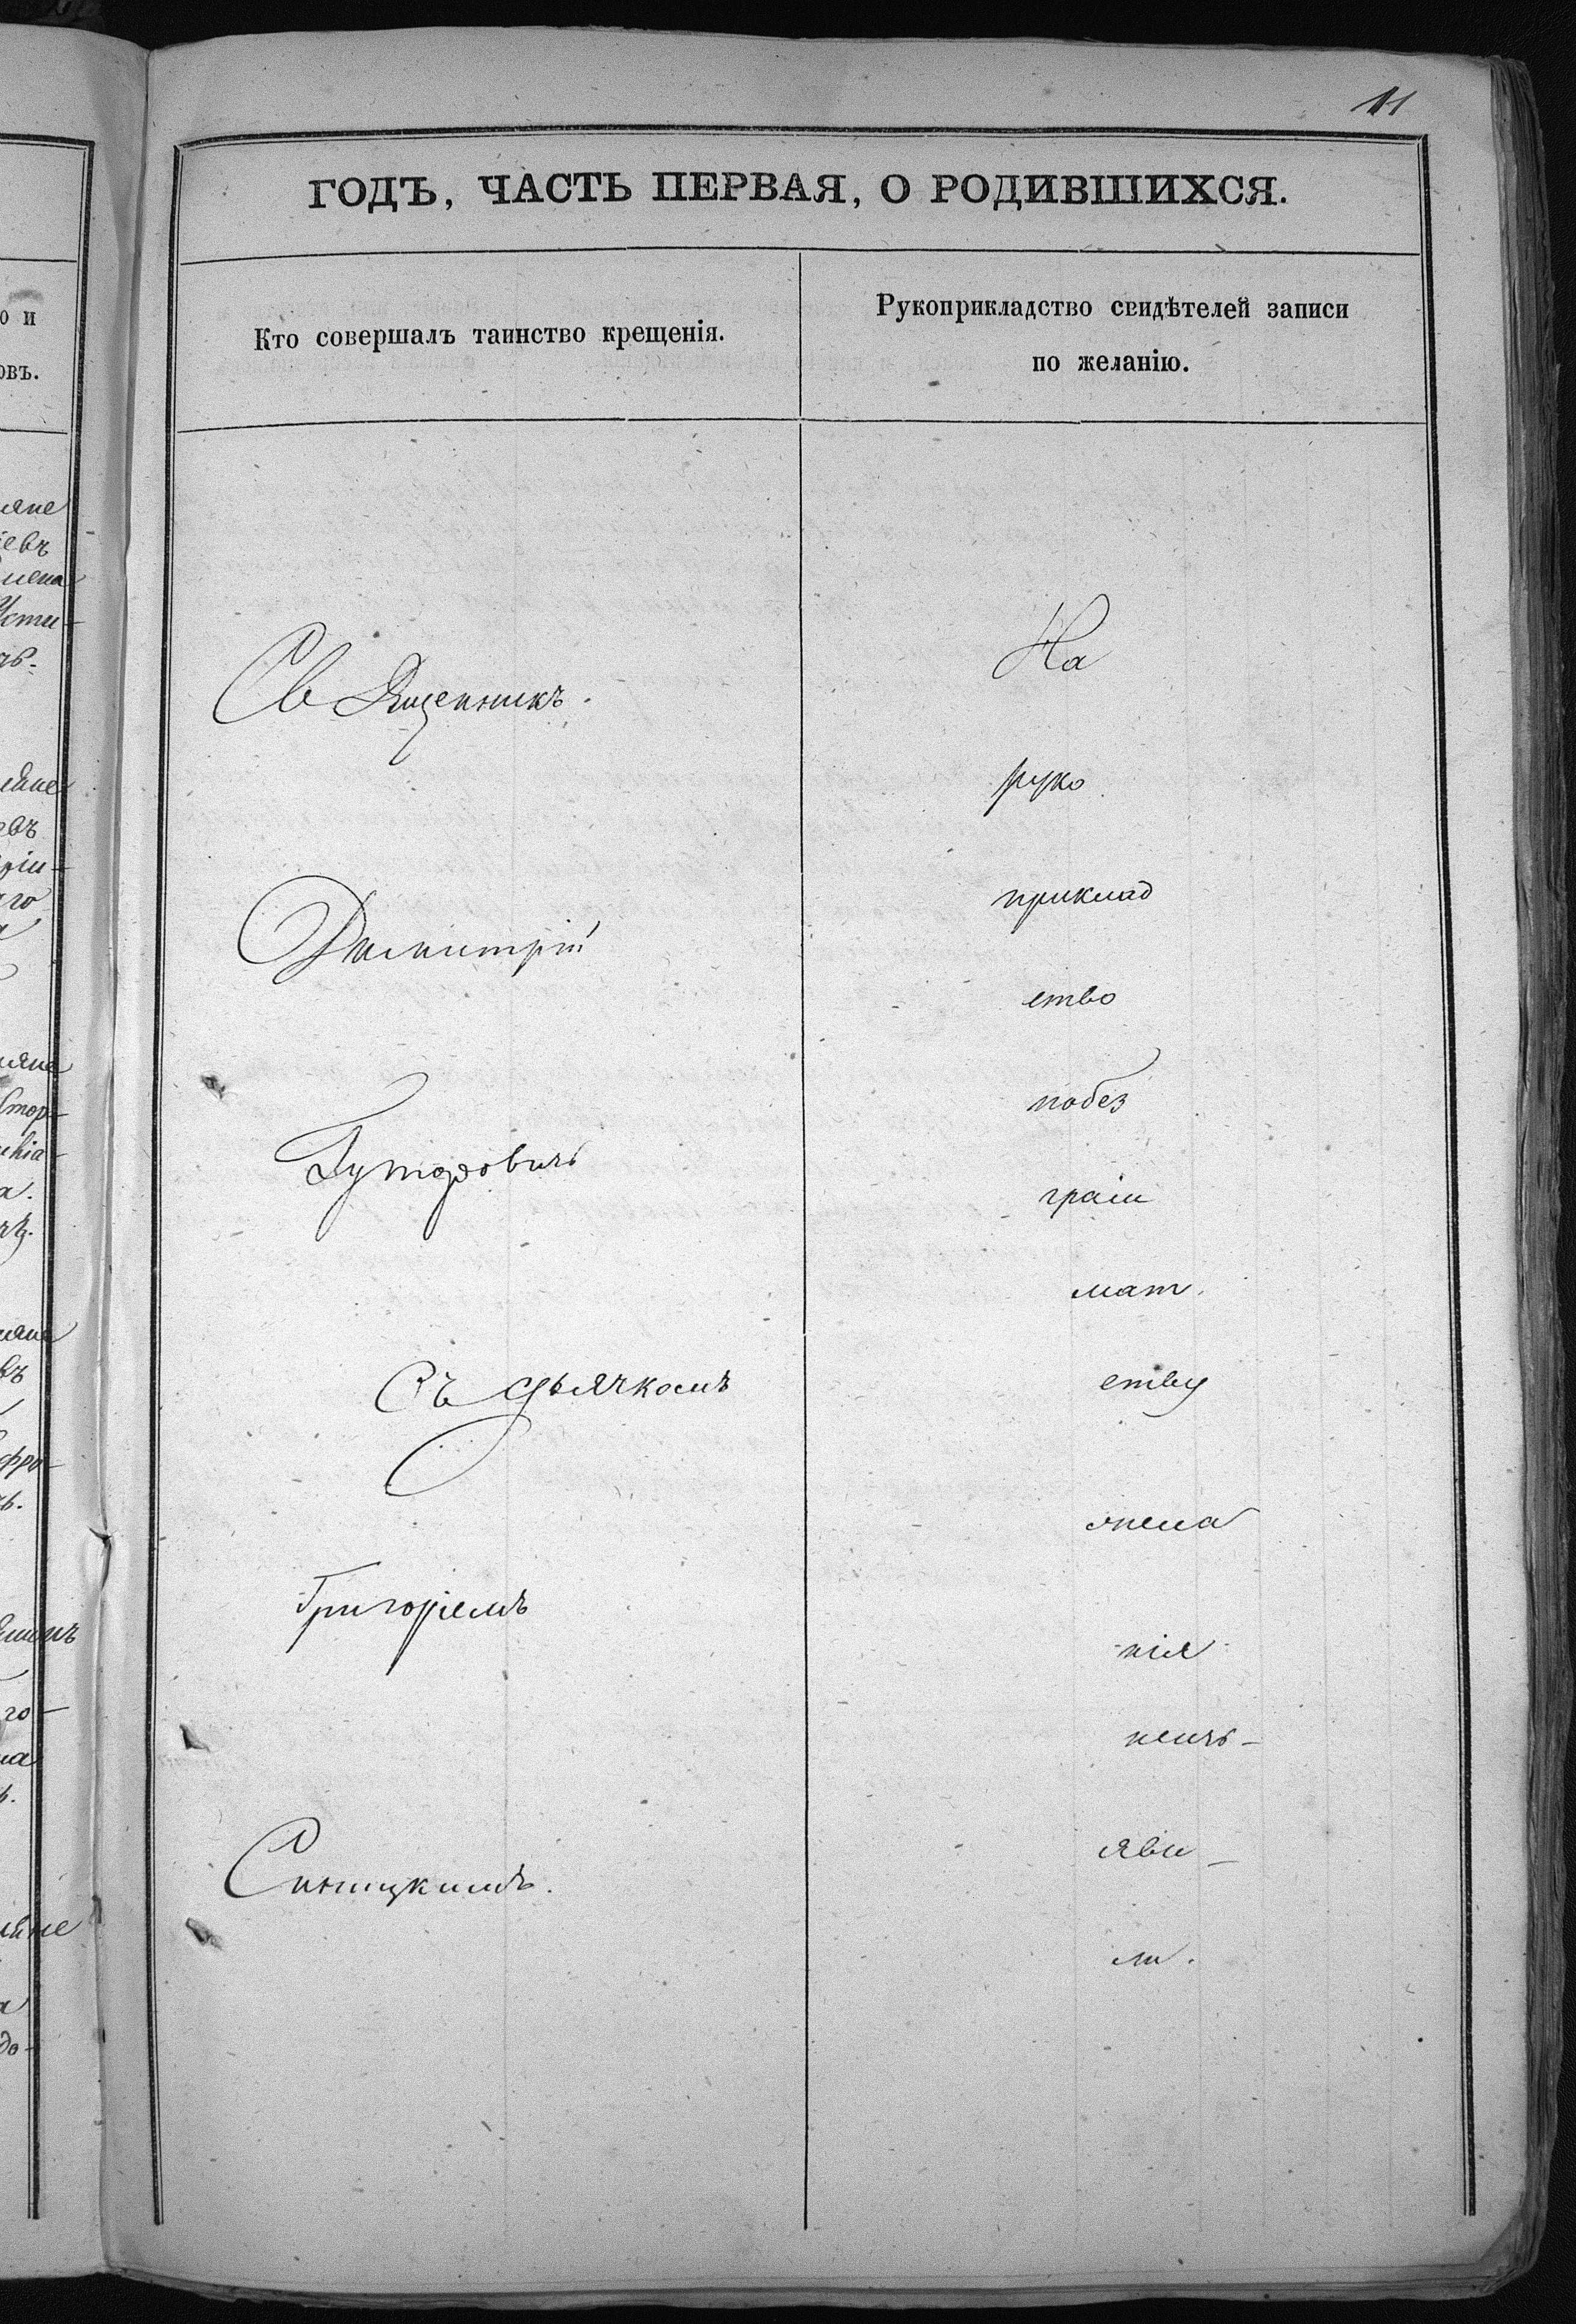 11
ГОДЪ, ЧАСТЬ ПЕРВАЯ, О РОДИВШИХСЯ.
Кто совершалъ таинство крещенія.
Рукоприкладство свидѣтелей записи
по желанію.
Священникъ.
Димитрій
Гуторовичъ
Съ дьячкомъ
Григоріемъ
Синицкимъ.
На
руко
приклад
ство
побез
грам
мат.
ству
жела
нія
неизъ-
яви-
ли.
о и
овъ.